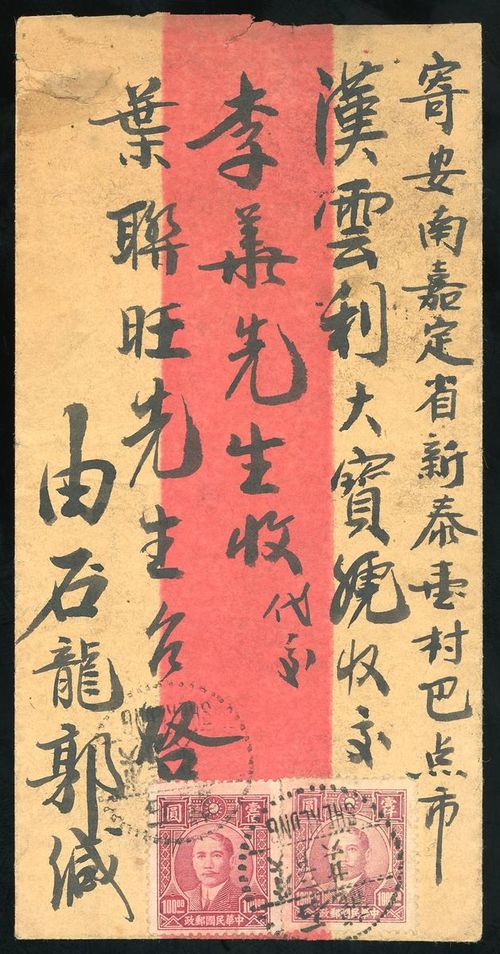 寄安南嘉定省新泰壹村巴点市
漢雲利大寶號收交
李華先生收
代交
葉聯旺先生台啓
由石龍郭緘
壹圓
100.00
中華民國郵政
壹圓
中華民國郵政
SHIHLUNG